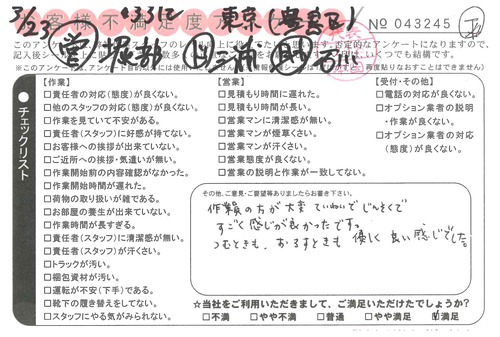 3/23
東京(豊島区)
お客様不満足度アンケート
No 043245
このアンケートは
否定的なアンケートになりますので、
いくつでも結構です。
再度貼りなおすことはできません)
チェックリスト
【作業】
□責任者の対応(態度)が良くない。
□他のスタッフの対応(態度)が良くない。
□作業を見ていて不安がある。
□責任者(スタッフ)に好感が持てない。
□お客様への挨拶が出来ていない。
□ご近所への挨拶・気遣いが無い。
□作業開始前の内容確認がなかった。
□作業開始時間が遅れた。
□荷物の取り扱いが雑である。
□お部屋の養生が出来ていない。
□作業時間が長すぎる。
□責任者(スタッフ)に清潔感が無い。
□責任者(スタッフ)が汗くさい。
□トラックが汚い。
□梱包資材が汚い。
□運転が不安(下手)である。
□靴下の履き替えをしてない。
□スタッフにやる気がみられない。
【営業】
□見積もり時間に遅れた。
□見積もり時間が長い。
□営業マンに清潔感が無い。
□営業マンが煙草くさい。
□営業マンが汗くさい。
□営業態度が良くない。
□営業の説明と作業が一致してない。
【受付・その他】
□電話の対応が良くない。
□オプション業者の説明
・作業が良くない。
□オプション業者の対応
(態度)が良くない。
その他、ご意見・ご要望等ありましたらお書き下さい。
作業員の方が大変 ていねいで じんそくで
すごく感じが良かったです。
つむときも、おろすときも 優しく 良い感じでした。
☆当社をご利用いただきまして、ご満足いただけたでしょうか?
□不満 □やや不満 □普通 □やや満足 ☑満足